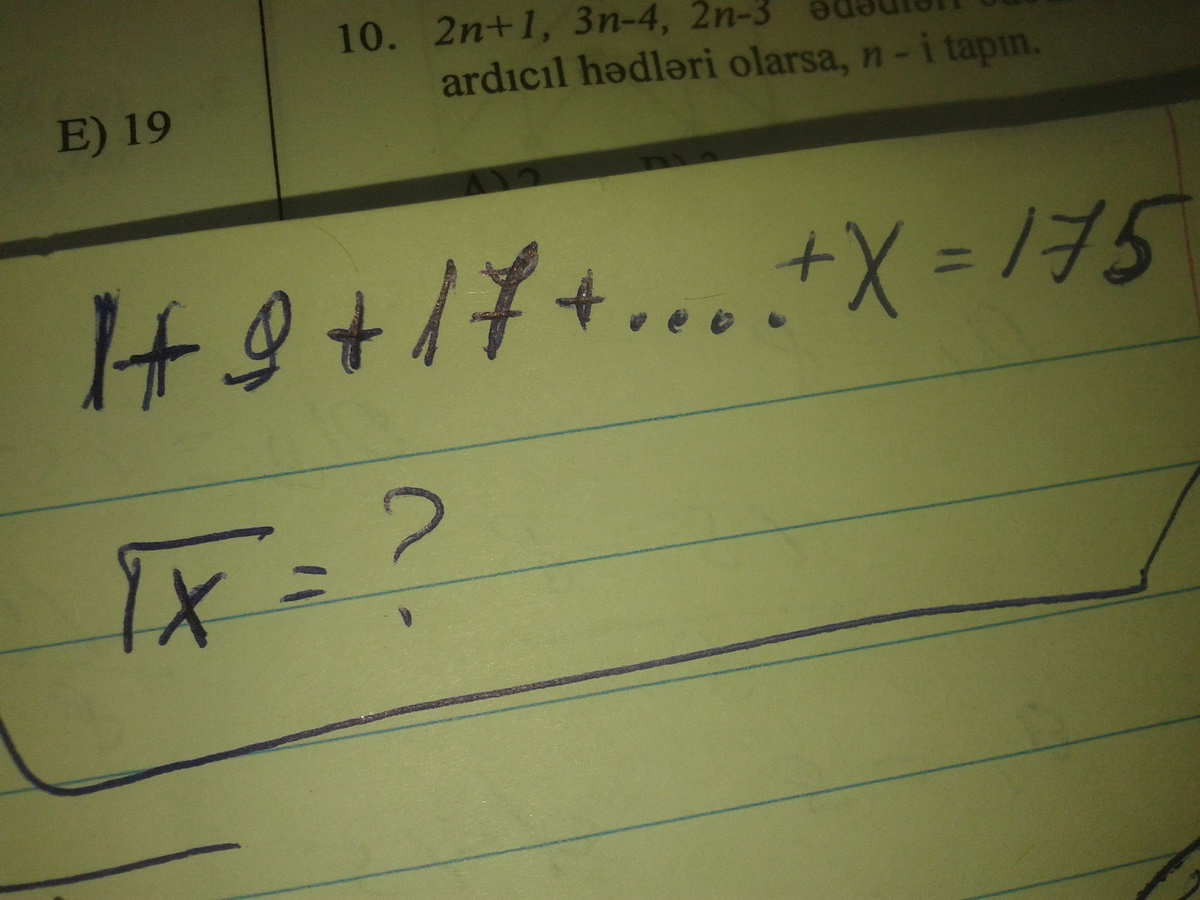 10. 2n+1, 3n-4, 2n-3
ardıcıl hədləri olarsa, n - i tapın.
E) 19
1+9+17+....+X=175
√x = ?